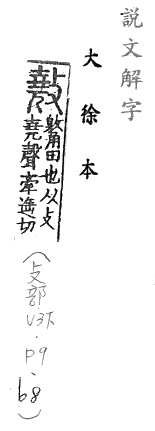 說文解字
大徐本
𢿣 㩰田也从攴
堯聲牽遙切
(攴部.V3下.P9.68)